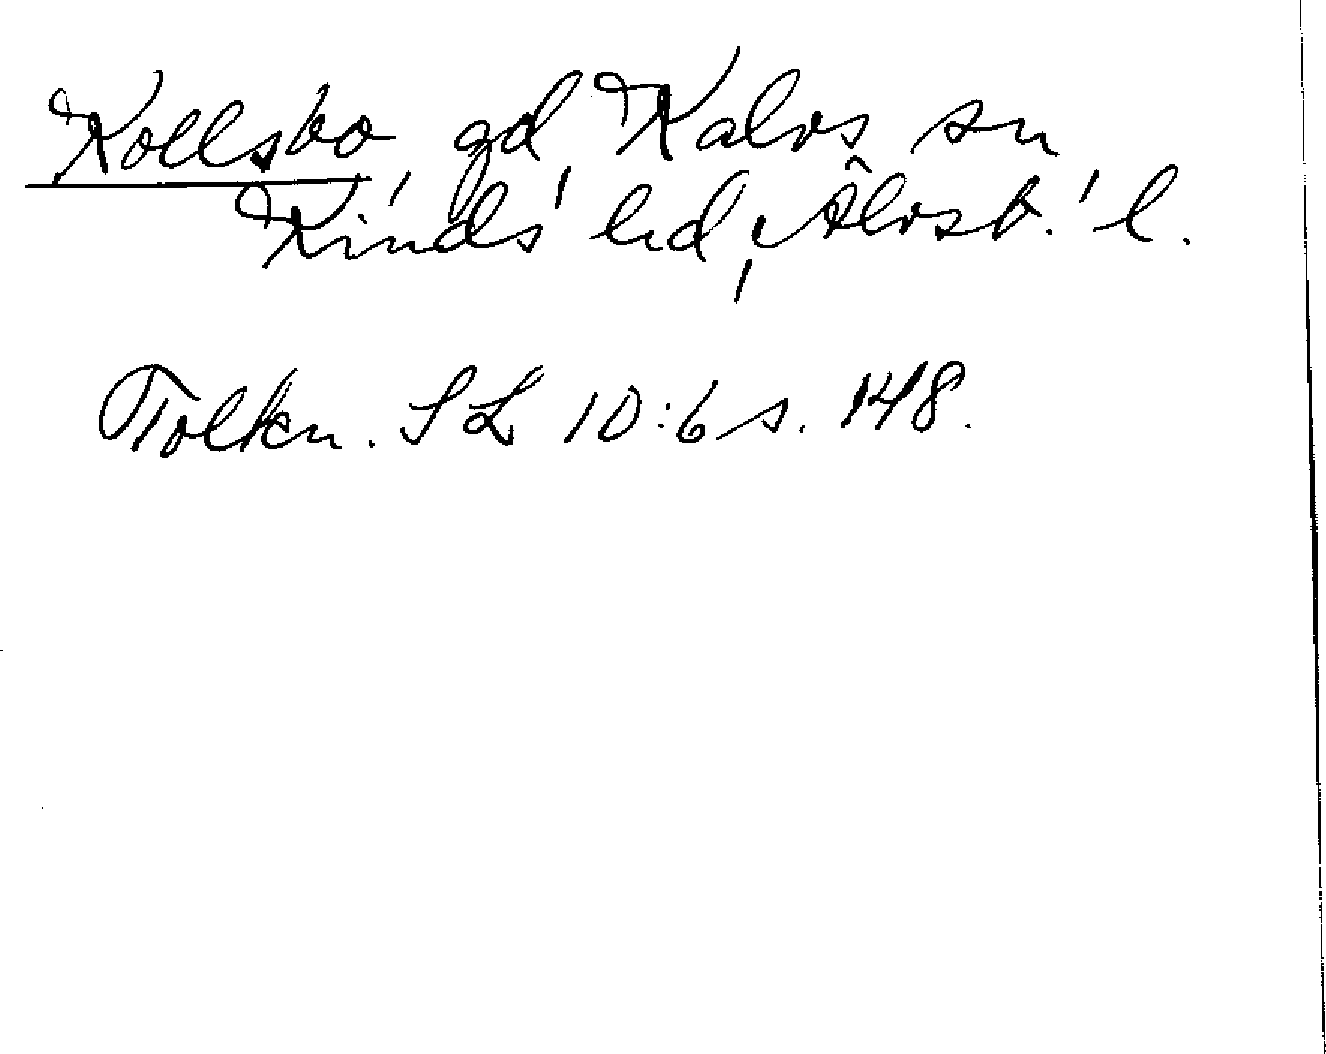 Kollsbo, gd, Kalvs sn
Kinds hd, Älvsb. l.
Tolkn. SL 10:6 s. 148.